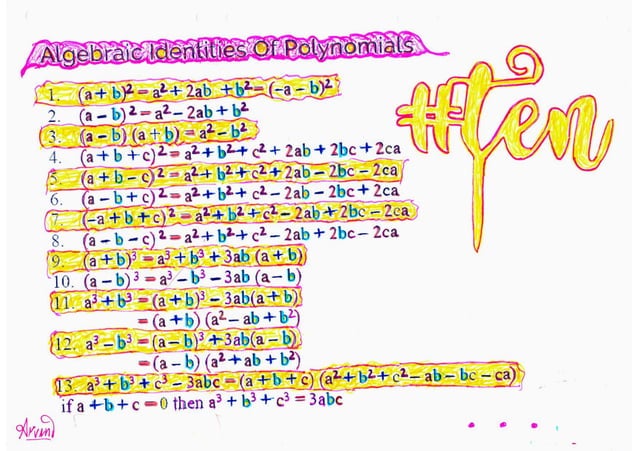 Algebraic Identities Of Polynomials
#Ten
1. (a + b)² = a² + 2ab + b² = (−a − b)²
2. (a − b)² = a² − 2ab + b²
3. (a − b) (a + b) = a² − b²
4. (a + b + c)² = a² + b² + c² + 2ab + 2bc + 2ca
5. (a + b − c)² = a² + b² + c² + 2ab − 2bc − 2ca
6. (a − b + c)² = a² + b² + c² − 2ab − 2bc + 2ca
7. (−a + b + c)² = a² + b² + c² − 2ab + 2bc − 2ca
8. (a − b − c)² = a² + b² + c² − 2ab + 2bc − 2ca
9. (a + b)³ = a³ + b³ + 3ab (a + b)
10. (a − b)³ = a³ − b³ − 3ab (a − b)
11. a³ + b³ = (a + b)³ − 3ab(a + b)
= (a + b) (a² − ab + b²)
12. a³ − b³ = (a − b)³ + 3ab(a − b)
= (a − b) (a² + ab + b²)
13. a³ + b³ + c³ − 3abc = (a + b + c) (a² + b² + c² − ab − bc − ca)
if a + b + c = 0 then a³ + b³ + c³ = 3abc